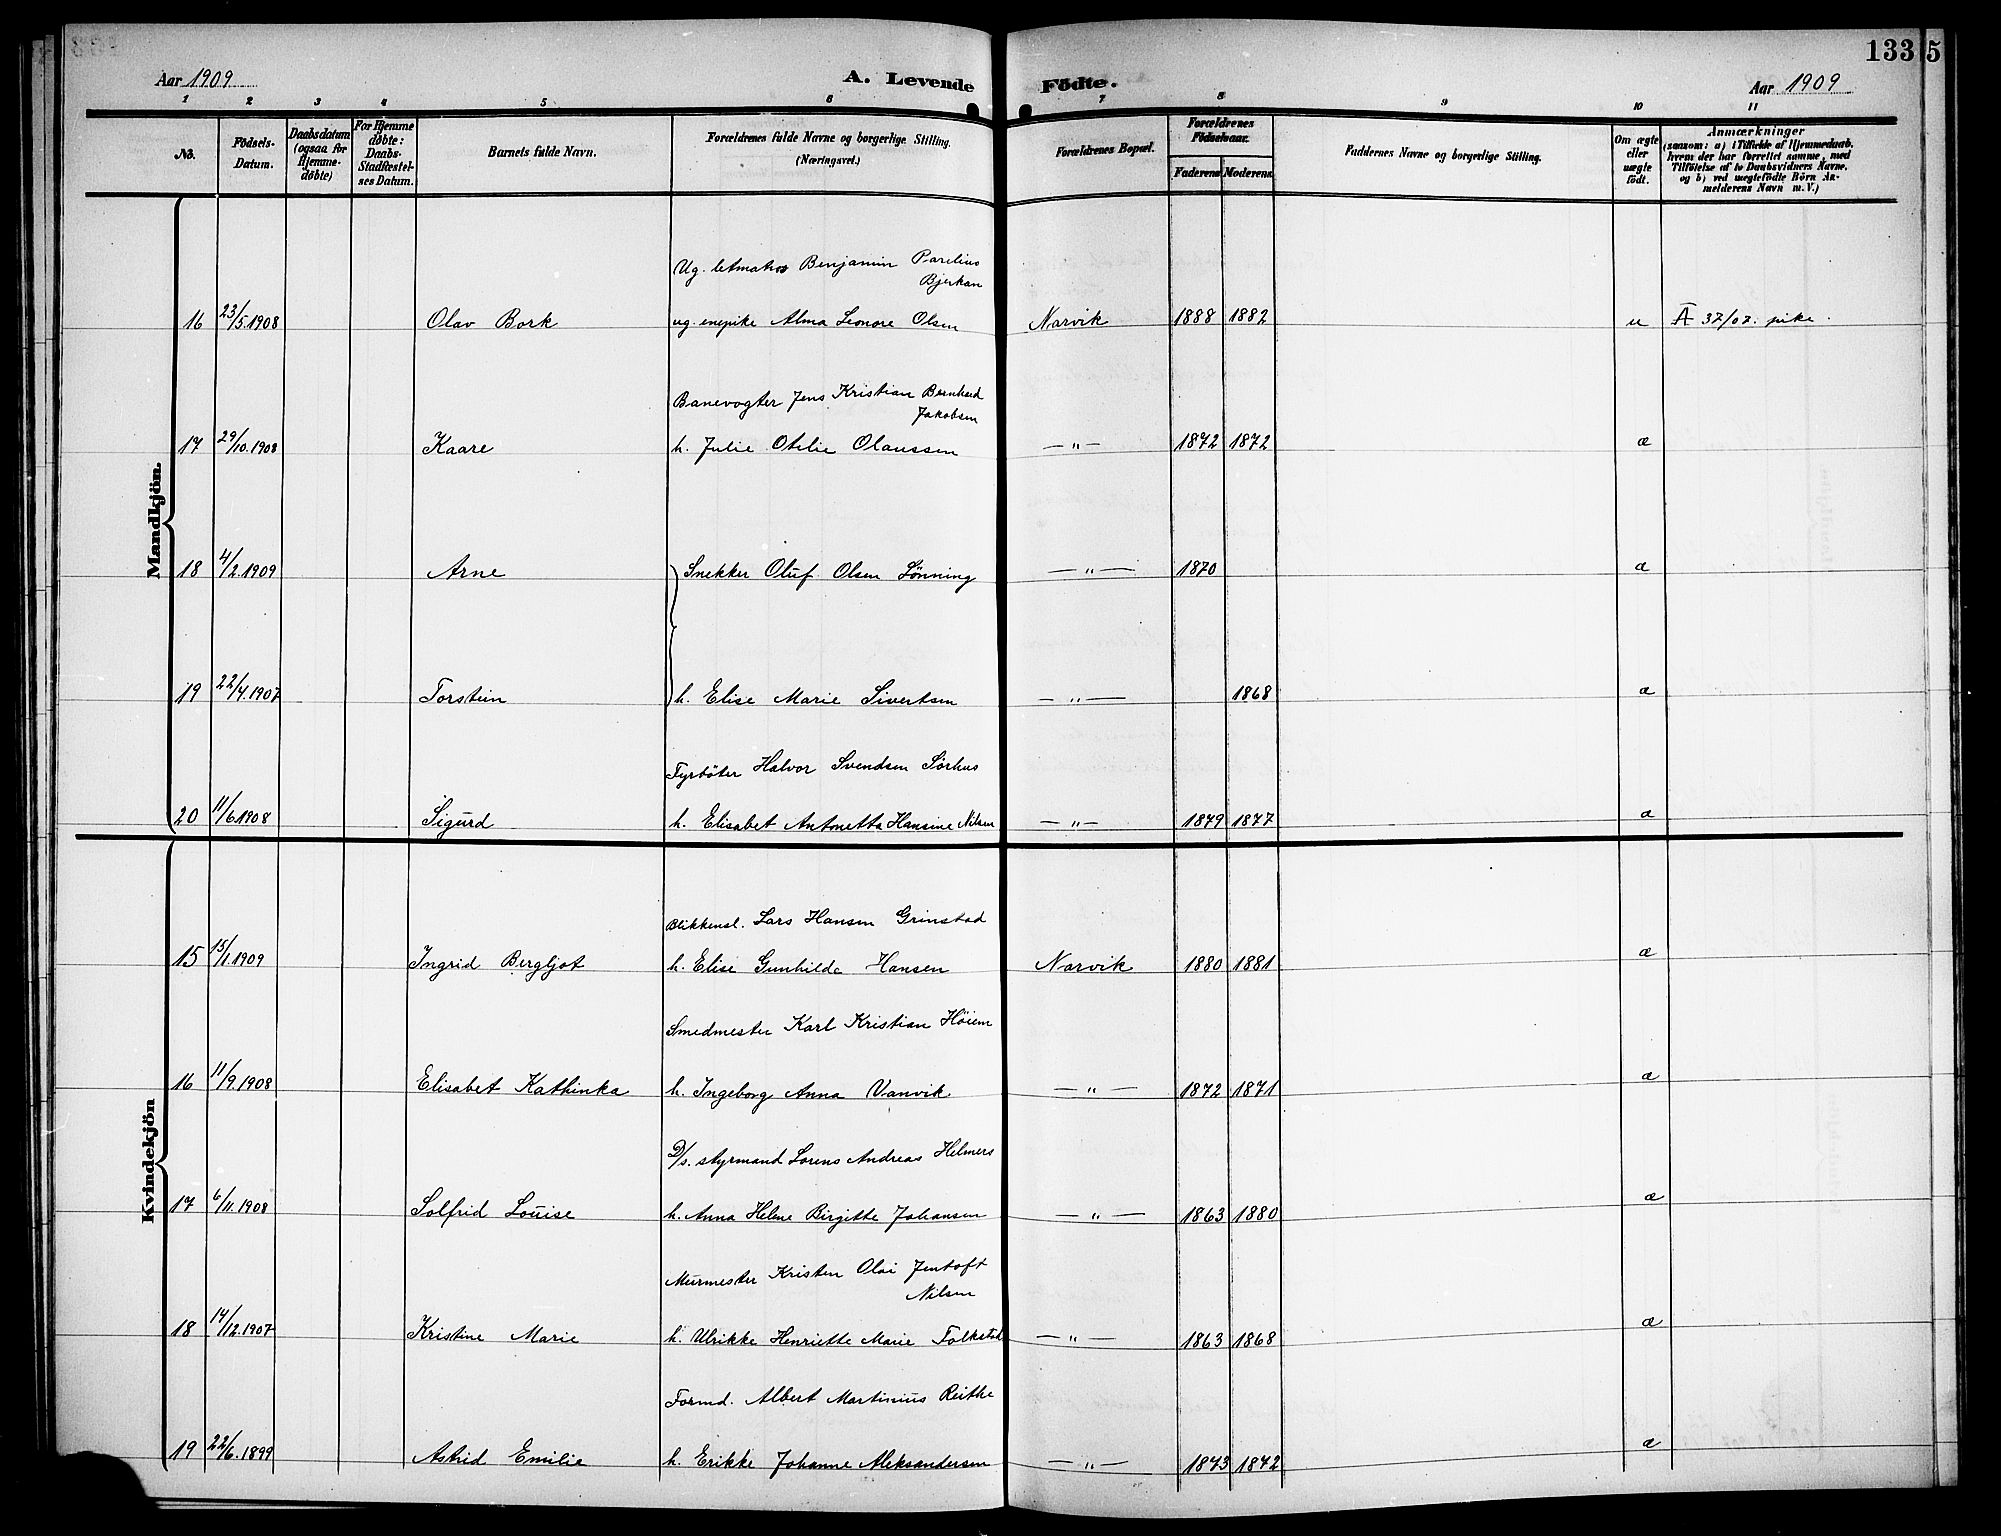 133 5
Aar 1909 A. Levende Födte. Aar 1909
1 2 3 4 5 6 7 8 9 10 11
No. Födsels-Datum. Daabsdatum (ogsaa for Hjemme-döbte) For Hjemme döbte: Daabs-Stadfæstel-ses Datum. Barnets fulde Navn. Forældrenes fulde Navne og borgerlige Stilling. (Næringsvei.) Forældrenes Bopæl. Forældrenes Födselsaar. Faderens Moderens Faddernes Navne og borgerlige Stilling. Om ægte eller uægte födt. Anmærkninger (saasom: a) i Tilfælde af Hjemmedaab, hvem der har forrettet samme, med Tilföielse af to Daabsvidners Navne, og b) ved uægtefödte Börn An-melderens Navn m. V.)
Mandkjön.
Ug. letmatros Benjamin Parelius
Bjerkan
16 23/5.1908 Olav Bork ug. enepike Alma Leonore Olsen Narvik 1888 1882 u A 37/07. pike.
Banevogter Jens Kristian Bernhard
Jakobsen
17 29/10.1908 Kaare h. Julie Otelie Olaussen —"— 1872 1872 æ
18 4/2.1909 Arne Snekker Oluf Olsen Lønning —"— 1870 æ
19 22/4.1907 Torstein h. Elise Marie Sivertsen —"— 1868 æ
Fyrbøter Halvor Svendsen Sörhus
20 11/6.1908 Sigurd h. Elisabet Antonette Hansine Nilsen —"— 1879 1877 æ
Kvindekjön
Blikkensl. Lars Hansen Grinstad
15 15/1.1909 Ingrid Bergljot h. Elise Gunhilde Hansen Narvik 1880 1881 æ
Smedmester Karl Kristian Höiem
16 11/9.1908 Elisabet Kathinka h. Ingeborg Anna Vanvik —"— 1872 1871 æ
D/s. styrmand Lorens Andreas Helmers
17 6/11.1908 Solfrid Louise h. Anna Helene Birgitte Johansen —"— 1863 1880 æ
Murmester Kristen Olai Jentoft
Nilsen
18 14/12.1907 Kristine Marie h. Ulrikke Henriette Marie Folkstad —"— 1863 1868 æ
Formd. Albert Martinius Reithe
19 22/6.1899 Astrid Emilie h. Erikke Johanne Aleksandersen —"— 1873 1872 æ